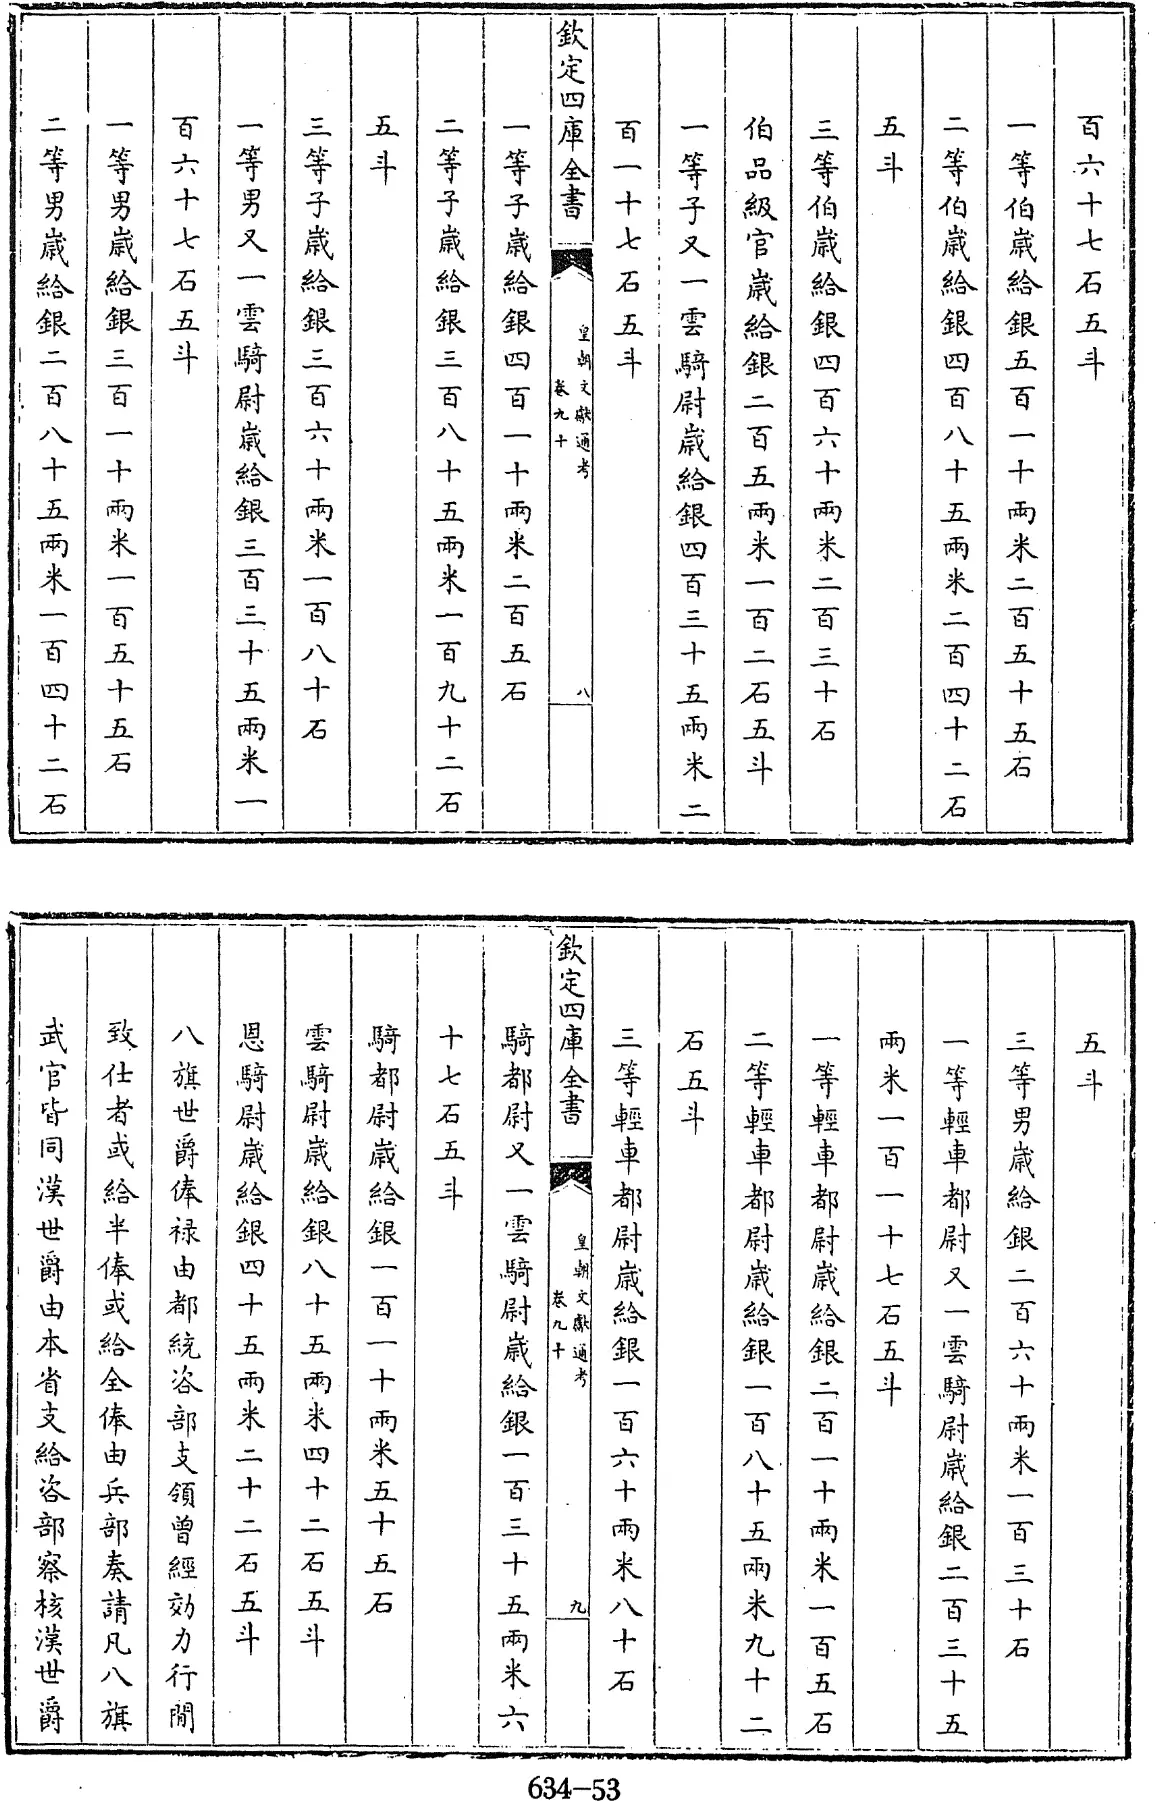 百六十七石五斗
一等伯歲給銀五百一十兩米二百五十五石
二等伯歲給銀四百八十五兩米二百四十二石
五斗
三等伯歲給銀四百六十兩米二百三十石
伯品級官歲給銀二百五兩米一百二石五斗
一等子又一雲騎尉歲給銀四百三十五兩米二
百一十七石五斗
欽定四庫全書
皇朝文獻通考
卷九十
八
一等子歲給銀四百一十兩米二百五石
二等子歲給銀三百八十五兩米一百九十二石
五斗
三等子歲給銀三百六十兩米一百八十石
一等男又一雲騎尉歲給銀三百三十五兩米一
百六十七石五斗
一等男歲給銀三百一十兩米一百五十五石
二等男歲給銀二百八十五兩米一百四十二石
五斗
三等男歲給銀二百六十兩米一百三十石
一等輕車都尉又一雲騎尉歲給銀二百三十五
兩米一百一十七石五斗
一等輕車都尉歲給銀二百一十兩米一百五石
二等輕車都尉歲給銀一百八十五兩米九十二
石五斗
三等輕車都尉歲給銀一百六十兩米八十石
欽定四庫全書
皇朝文獻通考
卷九十
九
騎都尉又一雲騎尉歲給銀一百三十五兩米六
十七石五斗
騎都尉歲給銀一百一十兩米五十五石
雲騎尉歲給銀八十五兩米四十二石五斗
恩騎尉歲給銀四十五兩米二十二石五斗
八旗世爵俸祿由都統咨部支領曾經効力行閒
致仕者或給半俸或給全俸由兵部奏請凡八旗
武官皆同漢世爵由本省支給咨部察核漢世爵
634-53